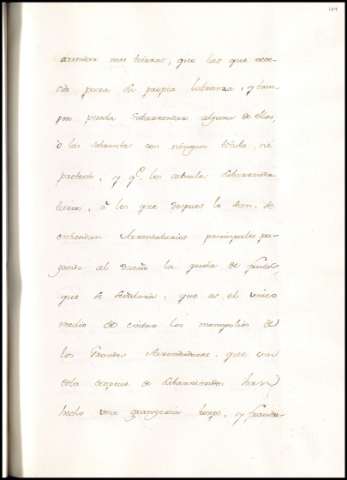 arienden mas tierras, que las que nece-
sita para su propia labranza, y tam
poco pueda subarrendar alguna de ellas,
o las subarriende con ningun titulo, ni
pretexto, y qe. los actuales subarrenda
tarios, a los que despues la den. se
entiendan Arrendatarios principales pa-
gando al dueño la quota de frutos
que se señalaria, que es el unico
medio de evitar los monopolios de
los Grandes Arrendadores, que con
esta especie de subarriendos han
hecho una grangeria, y